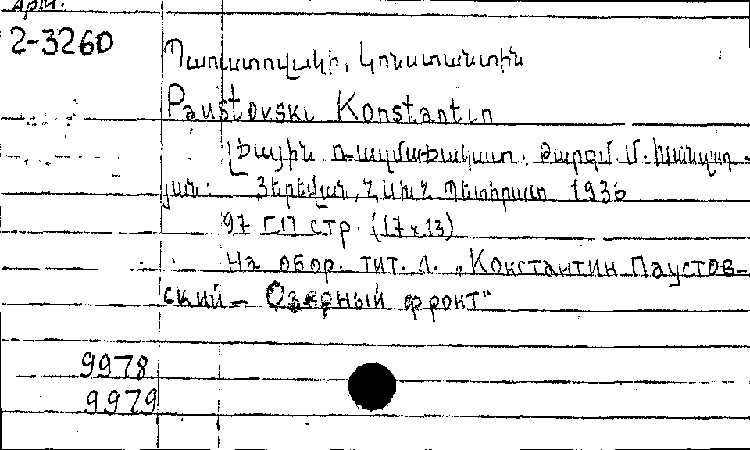 Арм.
2-3260
Պաուստովսկի, Կոնստանտին
Paustovski Konstantin
Լճային ռազմաճակատ. Թարգմ. Մ. Խանզադ-
յան: Յերեվան, ՀՍԽՀ Պետհրատ 1936
97 [1] стр. (17x13)
На обор. тит. л. „Константин Паустов-
ский – Озерный фронт“
9978
9979